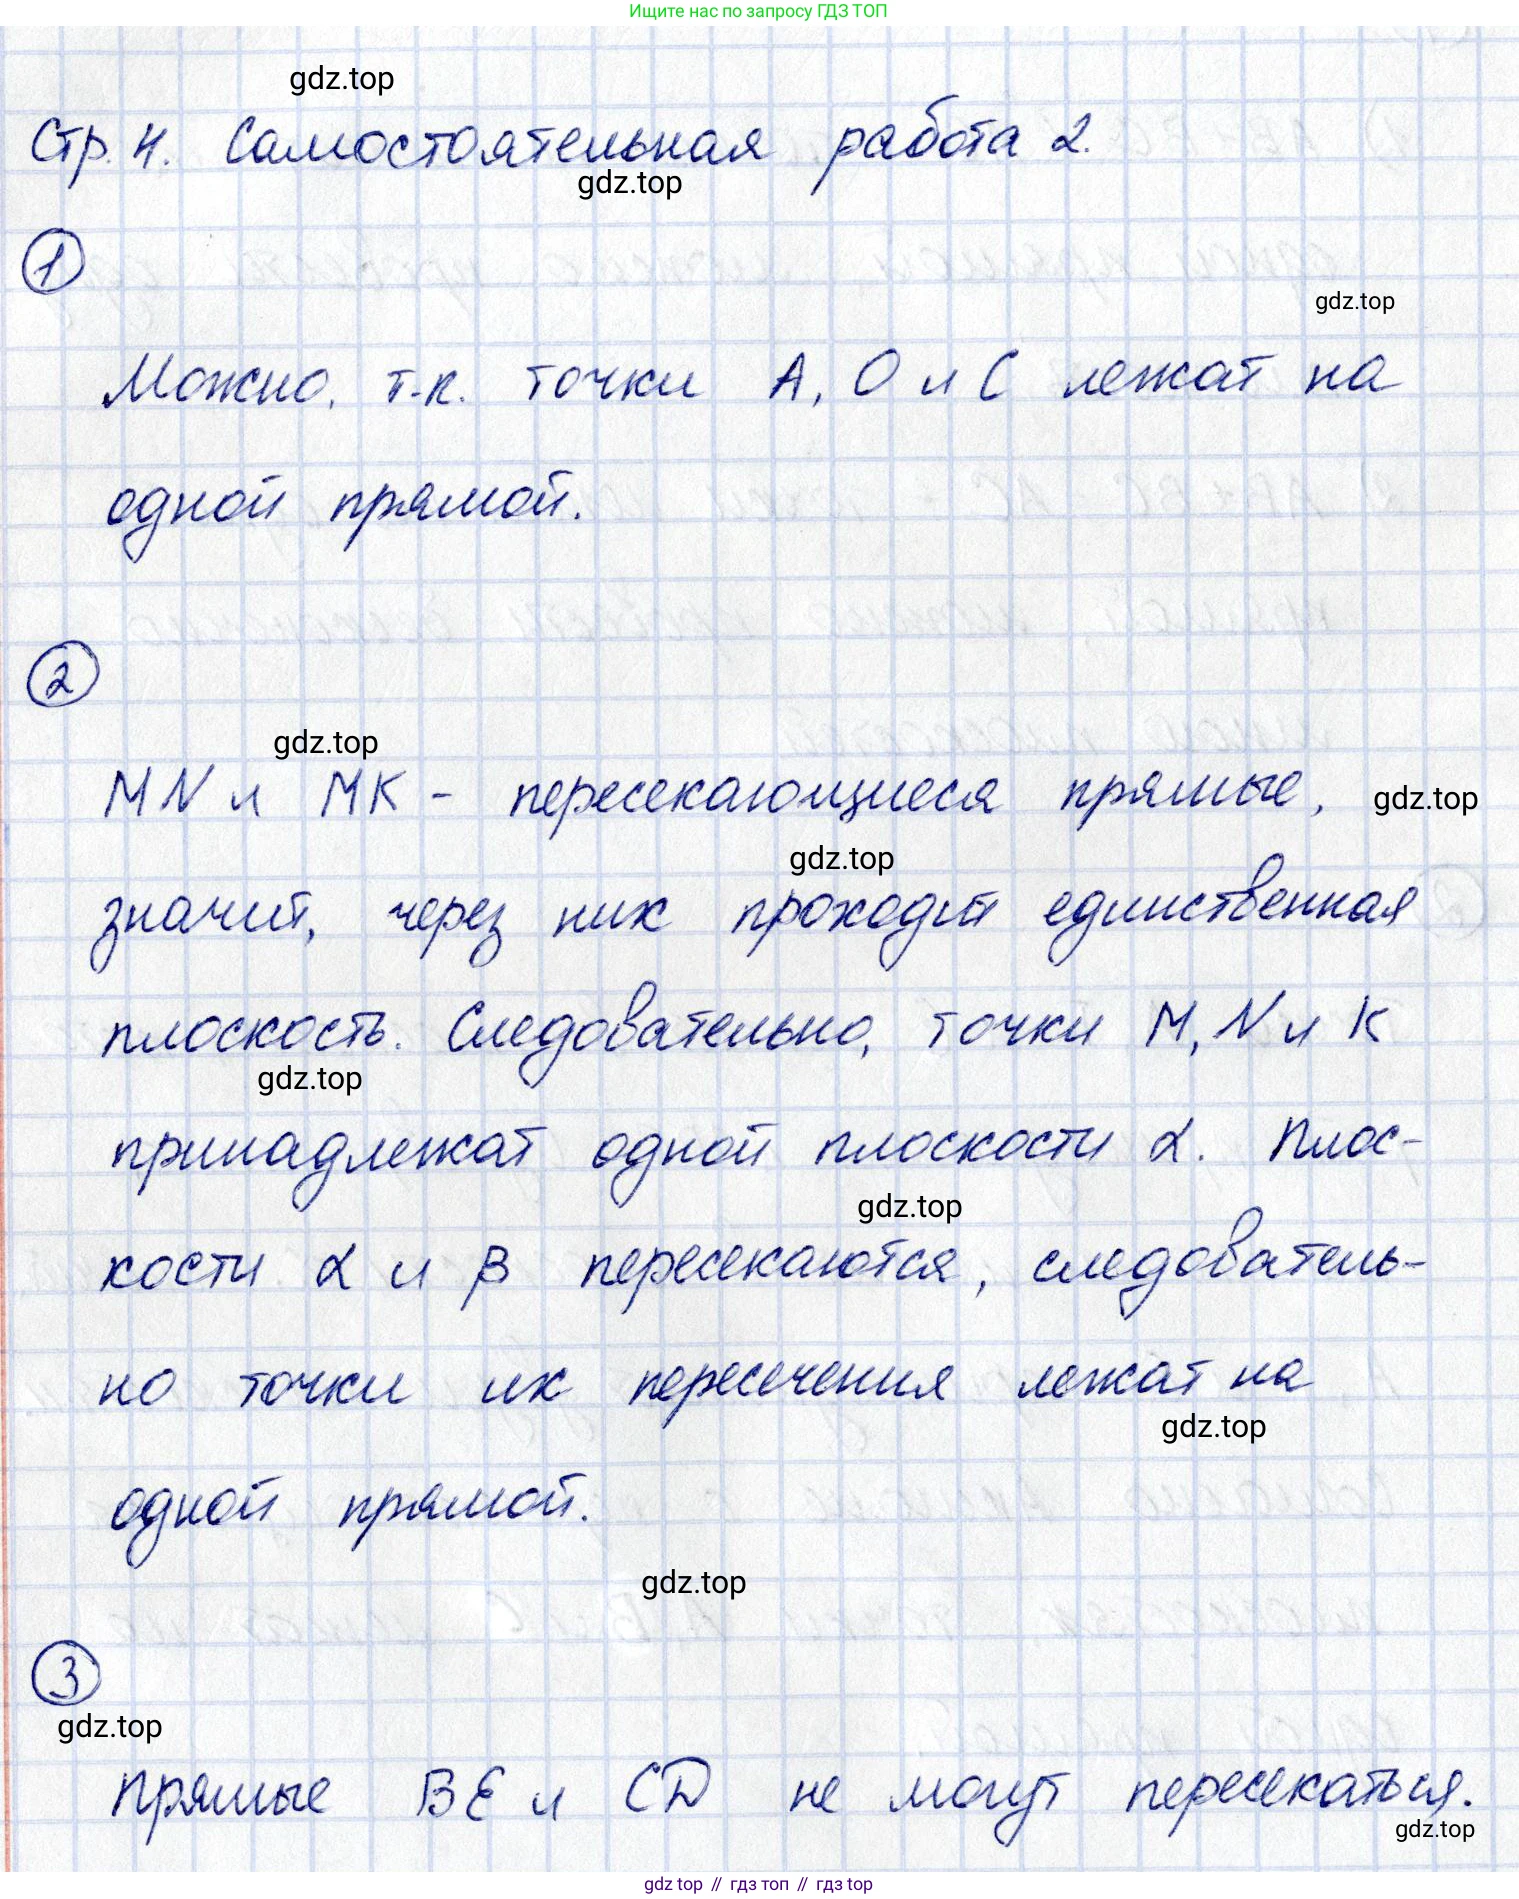 Ищите нас по запросу ГДЗ ТОП
gdz.top
Стр. 4. Самостоятельная работа 2.
gdz.top
1
gdz.top
Можно, т.к. точки A, O и C лежат на
одной прямой.
2
gdz.top
MN и MK - пересекающиеся прямые,
gdz.top
gdz.top
значит, через них проходит единственная
плоскость. Следовательно, точки M, N и K
gdz.top
принадлежат одной плоскости α. Плос-
gdz.top
кости α и β пересекаются, следователь-
но точки их пересечения лежат на
gdz.top
одной прямой.
gdz.top
3
gdz.top
Прямые BE и CD не могут пересекаться.
gdz.top
gdz top // гдз топ // гдз top